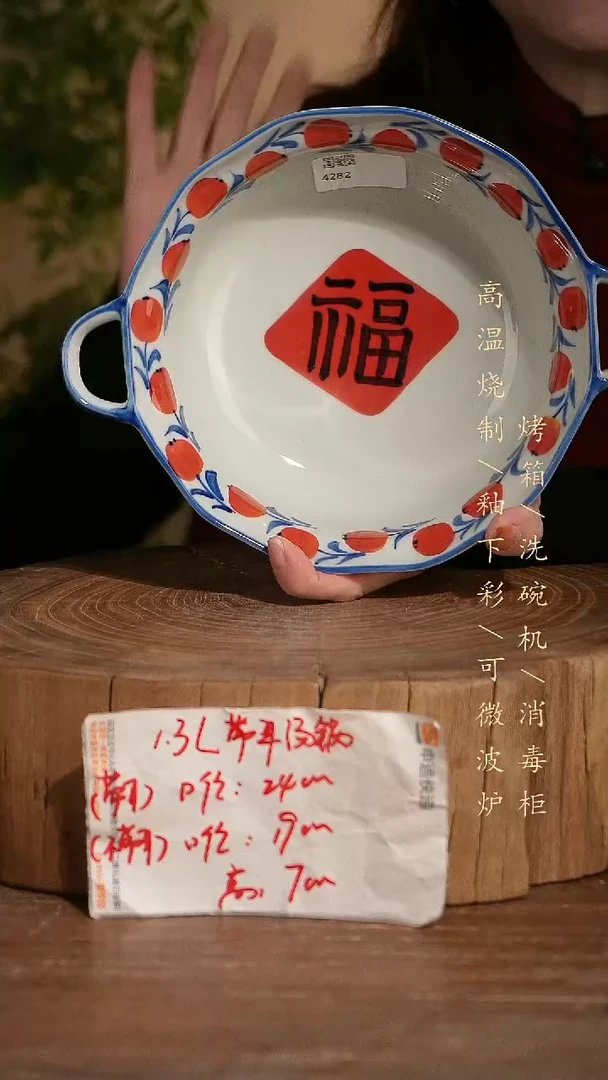 4282
福
高温烧制\釉下彩\可微波炉
烤箱\洗碗机\消毒柜
1.3L 带耳汤锅
(带耳) 口径：24cm
(不带耳) 口径：19cm
高：7cm
申通快递